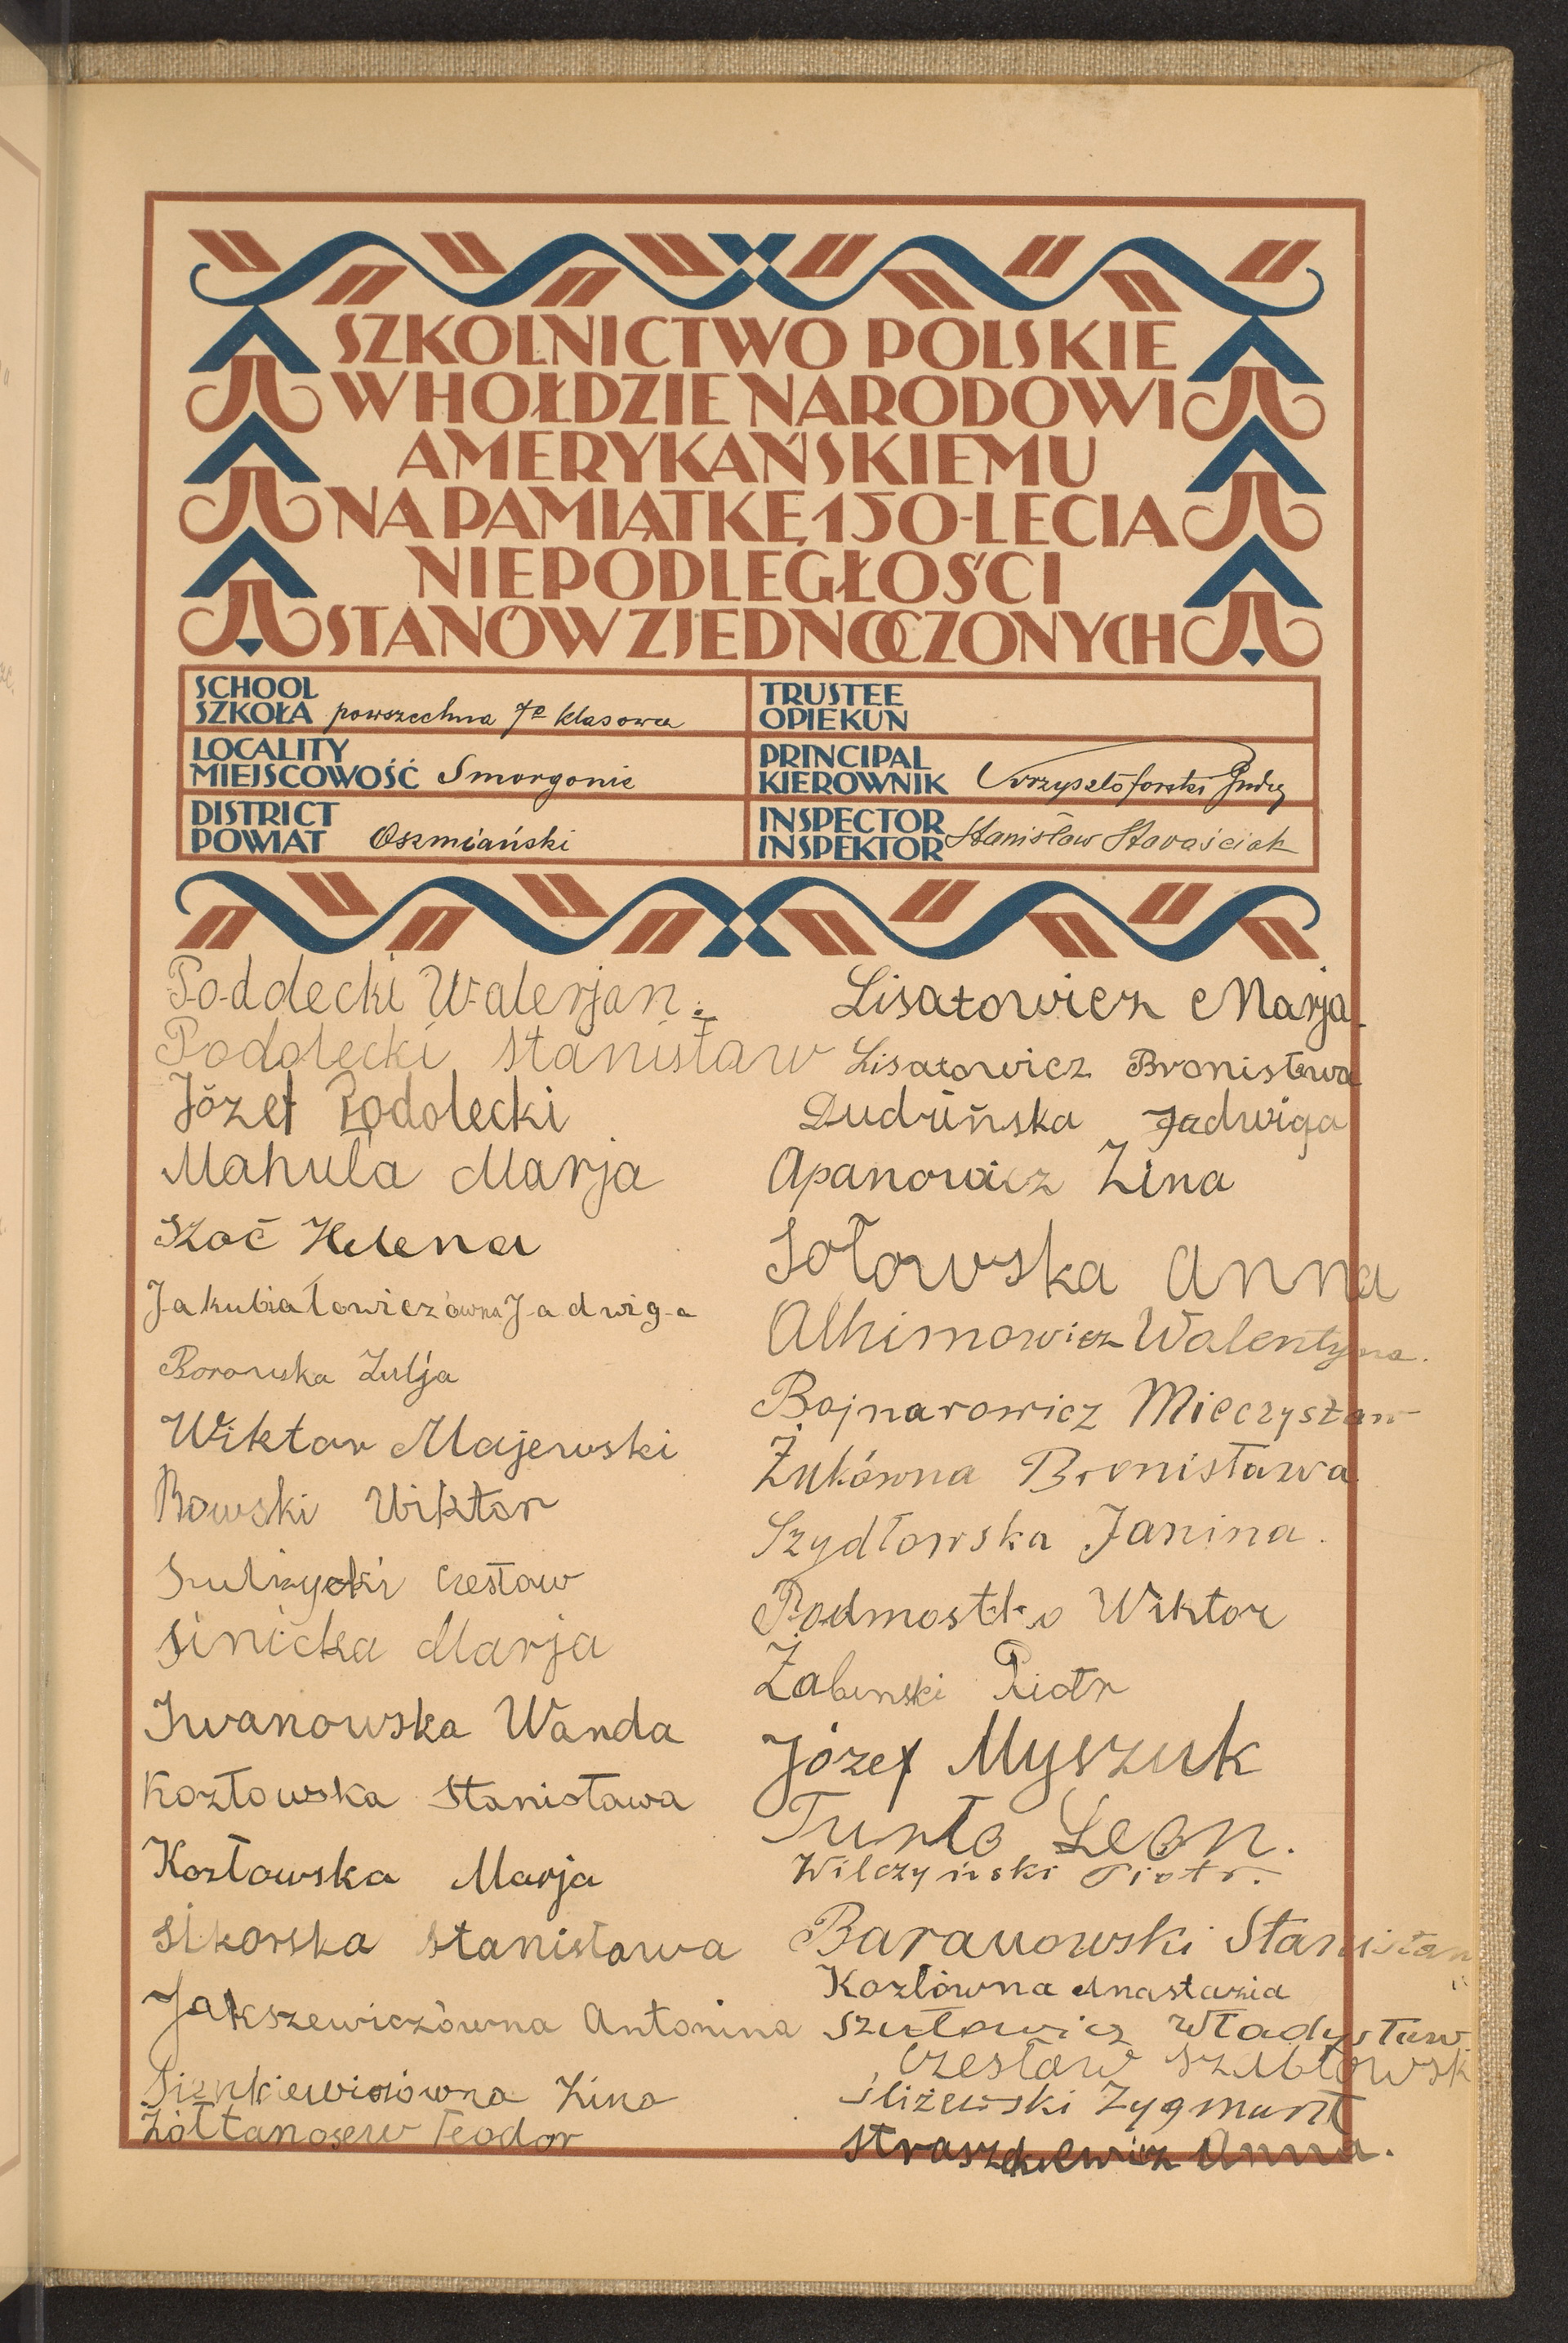 SZKOLNICTWO POLSKIE
W HOŁDZIE NARODOWI
AMERYKAŃSKIEMU
NA PAMIĄTKĘ 150-LECIA
NIEPODLEGŁOŚCI
STANÓW ZJEDNOCZONYCH
SCHOOL
SZKOŁA powszechna 7º klasowa
LOCALITY
MIEJSCOWOŚĆ Smorgonie
DISTRICT
POWIAT Oszmiański
TRUSTEE
OPIEKUN
PRINCIPAL
KIEROWNIK
INSPECTOR
INSPEKTOR Stanisław Starościak
Podolecki Walerjan.
Podolecki Stanisław
Józef Podolecki
Mahula Marja
Szoć Helena
Jakubiałowiczówna Jadwiga
Borowska Zulja
Wiktor Majewski
Rowski Wiktor
Czesław
Sinicka Marja
Iwanowska Wanda
Kozłowska Stanisława
Kozłowska Marja
Sikorska Stanisława
Jakszewiczówna Antonina
Sienkiewiczówna Zina
Żółtanosew Teodor
Lisatowicz Marja.
Lisatowicz Bronisława
Dudzińska Jadwiga
Apanowicz Zina
Sołowska Anna
Alhimowicz Walentyna.
Bojnarowicz Mieczysław
Żukówna Bronisława
Szydłowska Janina.
Podmostko Wiktor
Żabinski Piotr
Józef Myszuk
Turło Leon.
Wilczyński Piotr.
Baranowski Stanisław
Kozłówna Anastazia
Szutowicz Władysław
Czesław
Śliżewski Zygmunt
Straszkiewicz Anna.